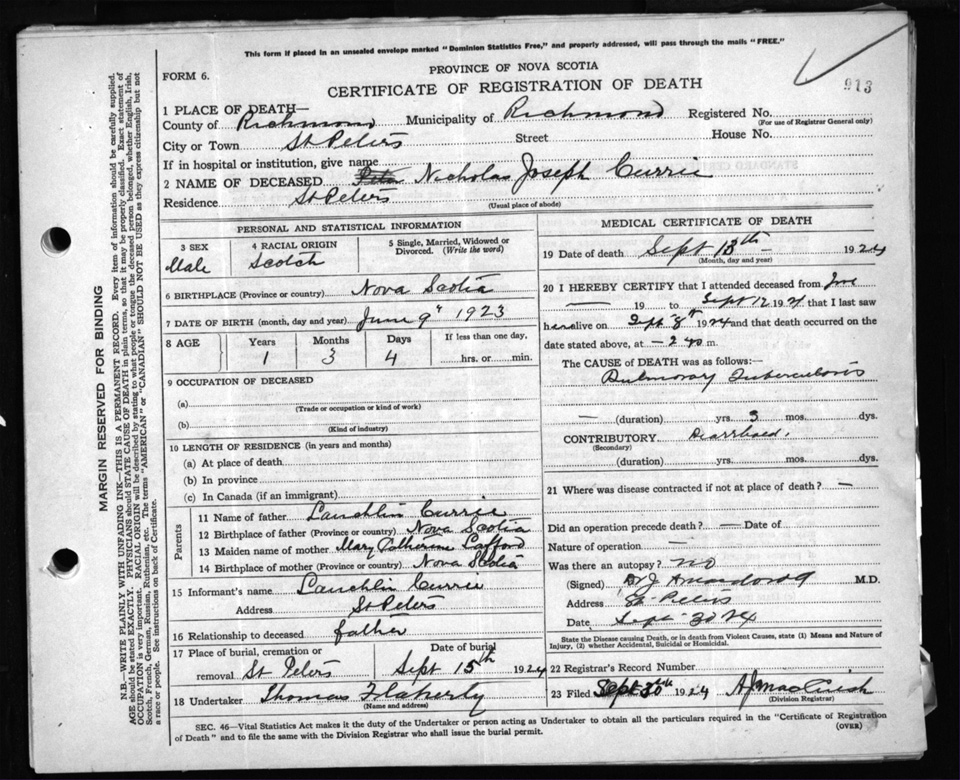 This form if placed in an unsealed envelope marked "Dominion Statistics Free," and properly addressed, will pass through the mails "FREE."
PROVINCE OF NOVA SCOTIA
FORM 6.
CERTIFICATE OF REGISTRATION OF DEATH
913
1 PLACE OF DEATH—
County of Richmond Municipality of Richmond Registered No.
(For use of Registrar General only)
City or Town St Peters Street House No.
If in hospital or institution, give name
2 NAME OF DECEASED Nicholas Joseph Currie
Residence St Peters
(Usual place of abode)
PERSONAL AND STATISTICAL INFORMATION
3 SEX
Male
4 RACIAL ORIGIN
Scotch
5 Single, Married, Widowed or Divorced. (Write the word)
6 BIRTHPLACE (Province or country) Nova Scotia
7 DATE OF BIRTH (month, day and year) June 9" 1923
8 AGE Years Months Days If less than one day,
1 3 4 hrs. or min.
9 OCCUPATION OF DECEASED
(a)
(Trade or occupation or kind of work)
(b)
(Kind of industry)
10 LENGTH OF RESIDENCE (in years and months)
(a) At place of death
(b) In province
(c) In Canada (if an immigrant)
Parents
11 Name of father Lauchlin Currie
12 Birthplace of father (Province or country) Nova Scotia
13 Maiden name of mother Mary Catherine Lafford
14 Birthplace of mother (Province or country) Nova Scotia
15 Informant's name Lauchlin Currie
Address St Peters
16 Relationship to deceased father
17 Place of burial, cremation or removal St Peters
Date of burial
Sept 15th 1924
18 Undertaker Thomas Flaherty
(Name and address)
MEDICAL CERTIFICATE OF DEATH
19 Date of death Sept 13th 1924
(Month, day and year)
20 I HEREBY CERTIFY that I attended deceased from
19 to Sept 12 1924 that I last saw
h alive on Sept 8th 1924 and that death occurred on the
date stated above, at — 2 m.
The CAUSE of DEATH was as follows:—
Pulmonary Tuberculosis
— (duration) yrs. 3 mos. dys.
CONTRIBUTORY Diarrhoea.
(Secondary)
(duration) yrs. mos. dys.
21 Where was disease contracted if not at place of death? —
Did an operation precede death? — Date of
Nature of operation —
Was there an autopsy? no
(Signed) M.D.
Address St. Peters
Date Sept 30 24
State the Disease causing Death, or in death from Violent Causes, state (1) Means and Nature of
Injury, (2) whether Accidental, Suicidal or Homicidal.
22 Registrar's Record Number
23 Filed Sept 30th 1924
(Division Registrar)
SEC. 46—Vital Statistics Act makes it the duty of the Undertaker or person acting as Undertaker to obtain all the particulars required in the "Certificate of Registration
of Death" and to file the same with the Division Registrar who shall issue the burial permit.
(OVER)
MARGIN RESERVED FOR BINDING
N.B.—WRITE PLAINLY WITH UNFADING INK—THIS IS A PERMANENT RECORD. Every item of information should be carefully supplied.
AGE should be stated EXACTLY. PHYSICIANS should STATE CAUSE OF DEATH in plain terms, so that it may be properly classified. Exact statement of
OCCUPATION is very important. RACIAL ORIGIN will be described by stating to what people or tongue the deceased person belonged, whether English, Irish,
Scotch, French, German, Russian, Ruthenian, etc. The terms "AMERICAN" or "CANADIAN" SHOULD NOT BE USED as they express citizenship but not
a race or people. See instructions on back of Certificate.